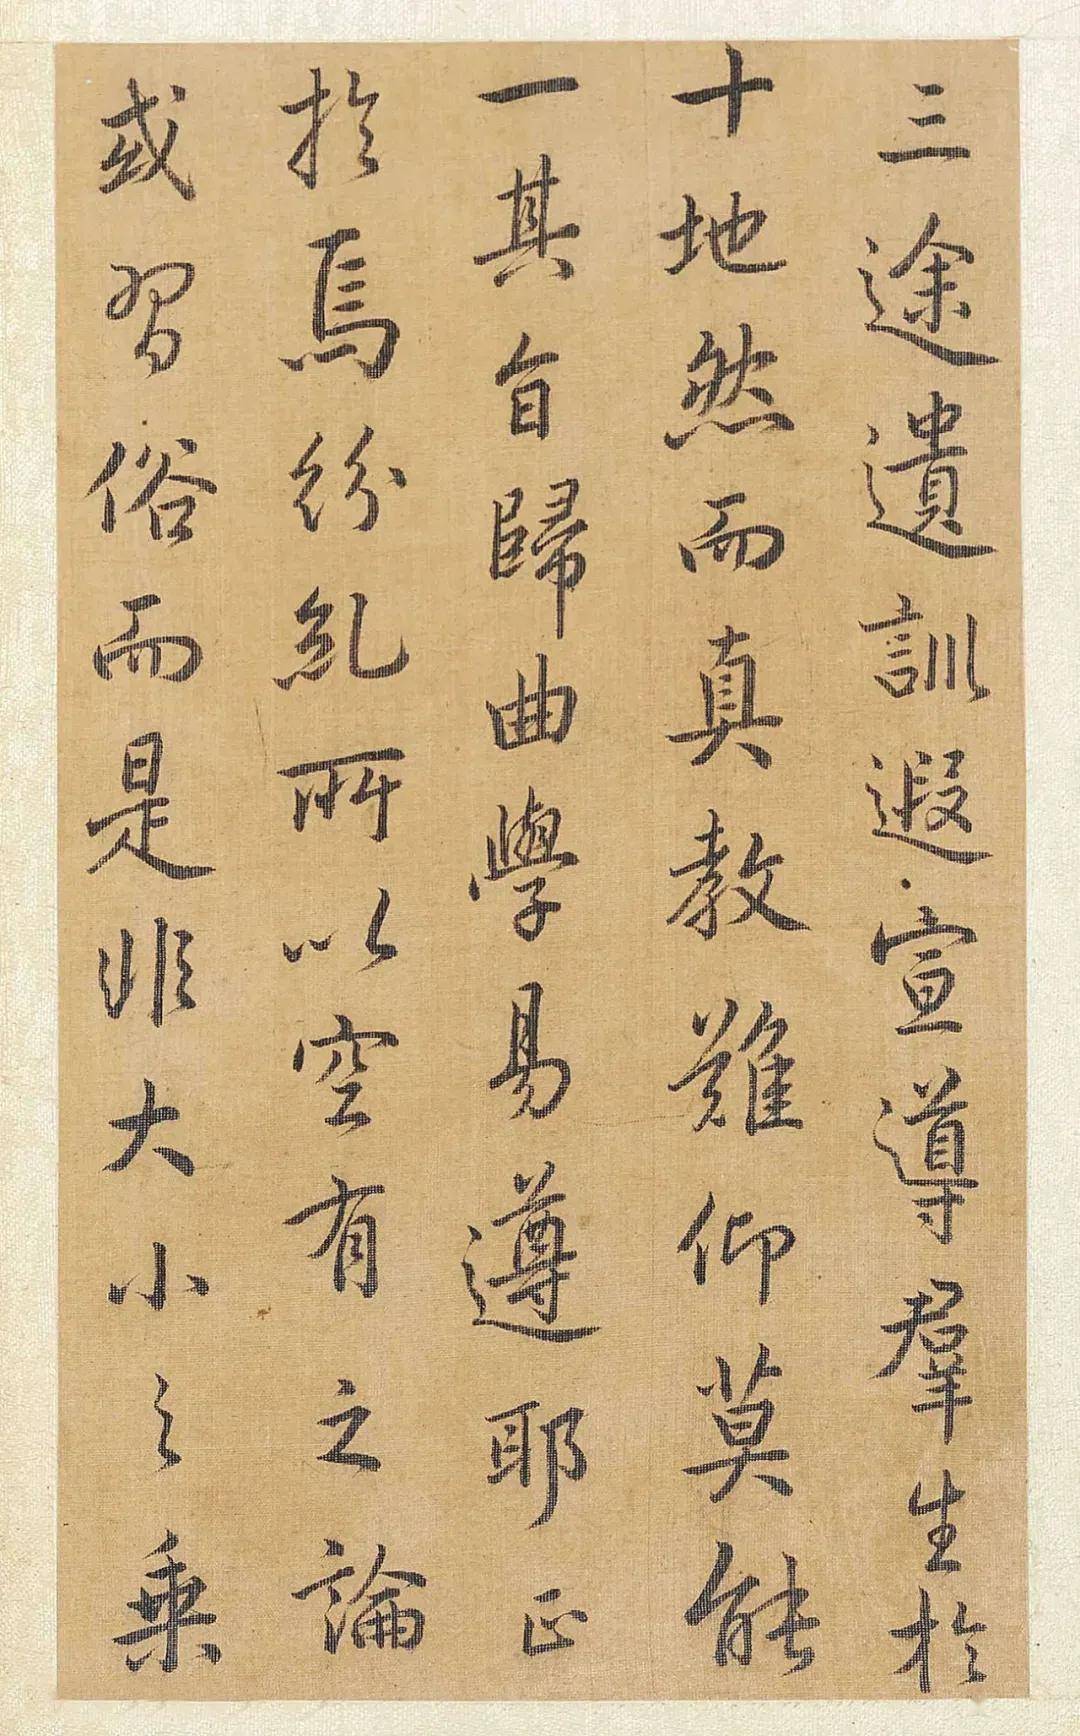 三途遺訓遐宣導羣生於
十地然而真教難仰莫能
一其旨歸曲學易遵耶正
於焉紛乱所以空有之論
或習俗而是非大小之乘